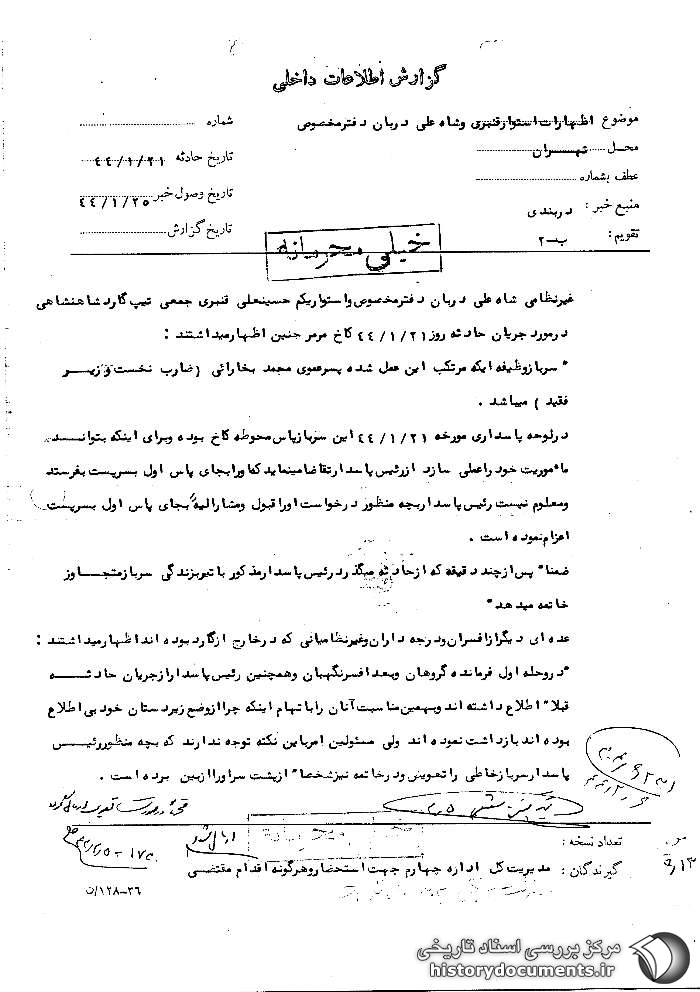 گزارش اطلاعات داخلی
موضوع اظهارات استوار قنبری و شاه علی دربان دفتر مخصوص
شماره
محل تهران
تاریخ حادثه ۴۴/۱/۲۱
عطف بشماره
تاریخ وصول خبر ۴۴/۱/۲۵
منبع خبر : دربندی
تاریخ گزارش
تقویم : ب-۲
خیلی محرمانه
غیرنظامی شاه علی دربان دفتر مخصوص و استواریکم حسینعلی قنبری جمعی تیپ گارد شاهنشاهی
درمورد جریان حادثه روز ۴۴/۱/۲۱ کاخ مرمر چنین اظهار میداشتند :
" سرباز وظیفه ایکه مرتکب این عمل شده پسرعموی محمد بخارائی (ضارب نخست وزیر
فقید ) میباشد .
درلوحه پاسداری مورخه ۴۴/۱/۲۱ این سرباز پاس محوطه کاخ بوده وبرای اینکه بتوانسد
ماموریت خود را عملی سازد از رئیس پاسدار تقاضا مینماید که اورا بجای پاس اول بسرپست بفرستد
ومعلوم نیست رئیس پاسدار بچه منظور درخواست اورا قبول ومشارالیه بجای پاس اول بسرپست
اعزام نموده است .
ضمنا" پس از چند دقیقه که از حادثه میگذرد رئیس پاسدار مذکور با تیر بزندگی سرباز متجاوز
خاتمه میدهد"
عده ای دیگر از افسران ودرجه داران وغیرنظامیانی که درخارج از گارد بوده اند اظهار میداشتند :
"دروحله اول فرمانده گروهان وبعد افسرنگهبان وهمچنین رئیس پاسدار از جریان حادثه
قبلا" اطلاع داشته اند وبهمین مناسبت آنان را با تهام اینکه چرا از وضع زیردستان خود بی اطلاع
بوده اند بازداشت نموده اند ولی مسئولین امر باین نکته توجه ندارند که بچه منظور رئیس
پاسدار سرباز خاطی را تعویض ودرخاتمه نیز شخصا" از پشت سر او را از بین برده است .
تعداد نسخه :
ارسال شود
گیرندگان : مدیریت کل اداره چهارم جهت استحضار وهرگونه اقدام مقتضی
۳۶-۱۲۸/ن
مرکز بررسی اسناد تاریخی
historydocuments.ir